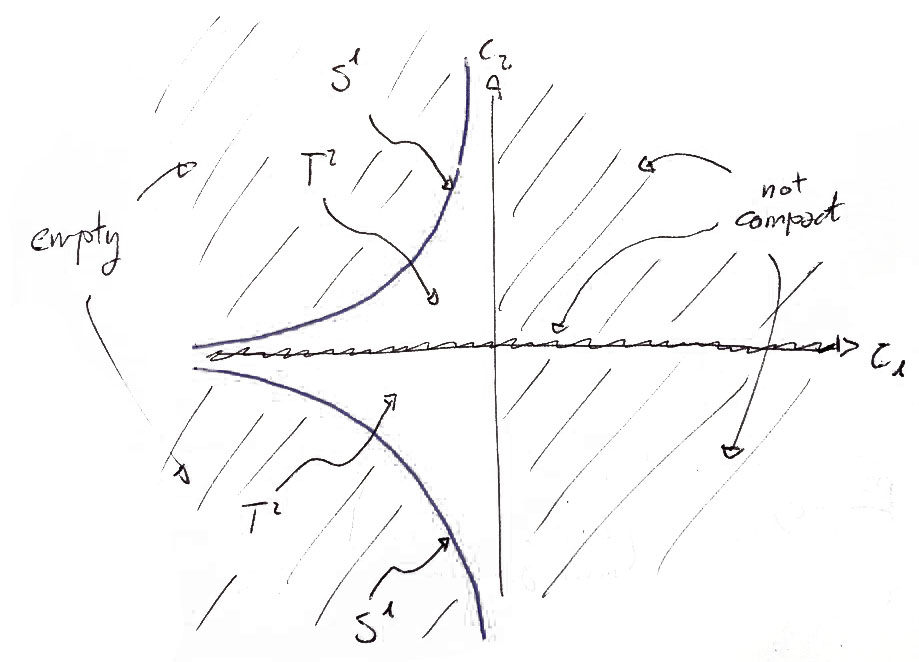 c₂
S¹
T²
empty
not
compact
c₁
T²
S¹